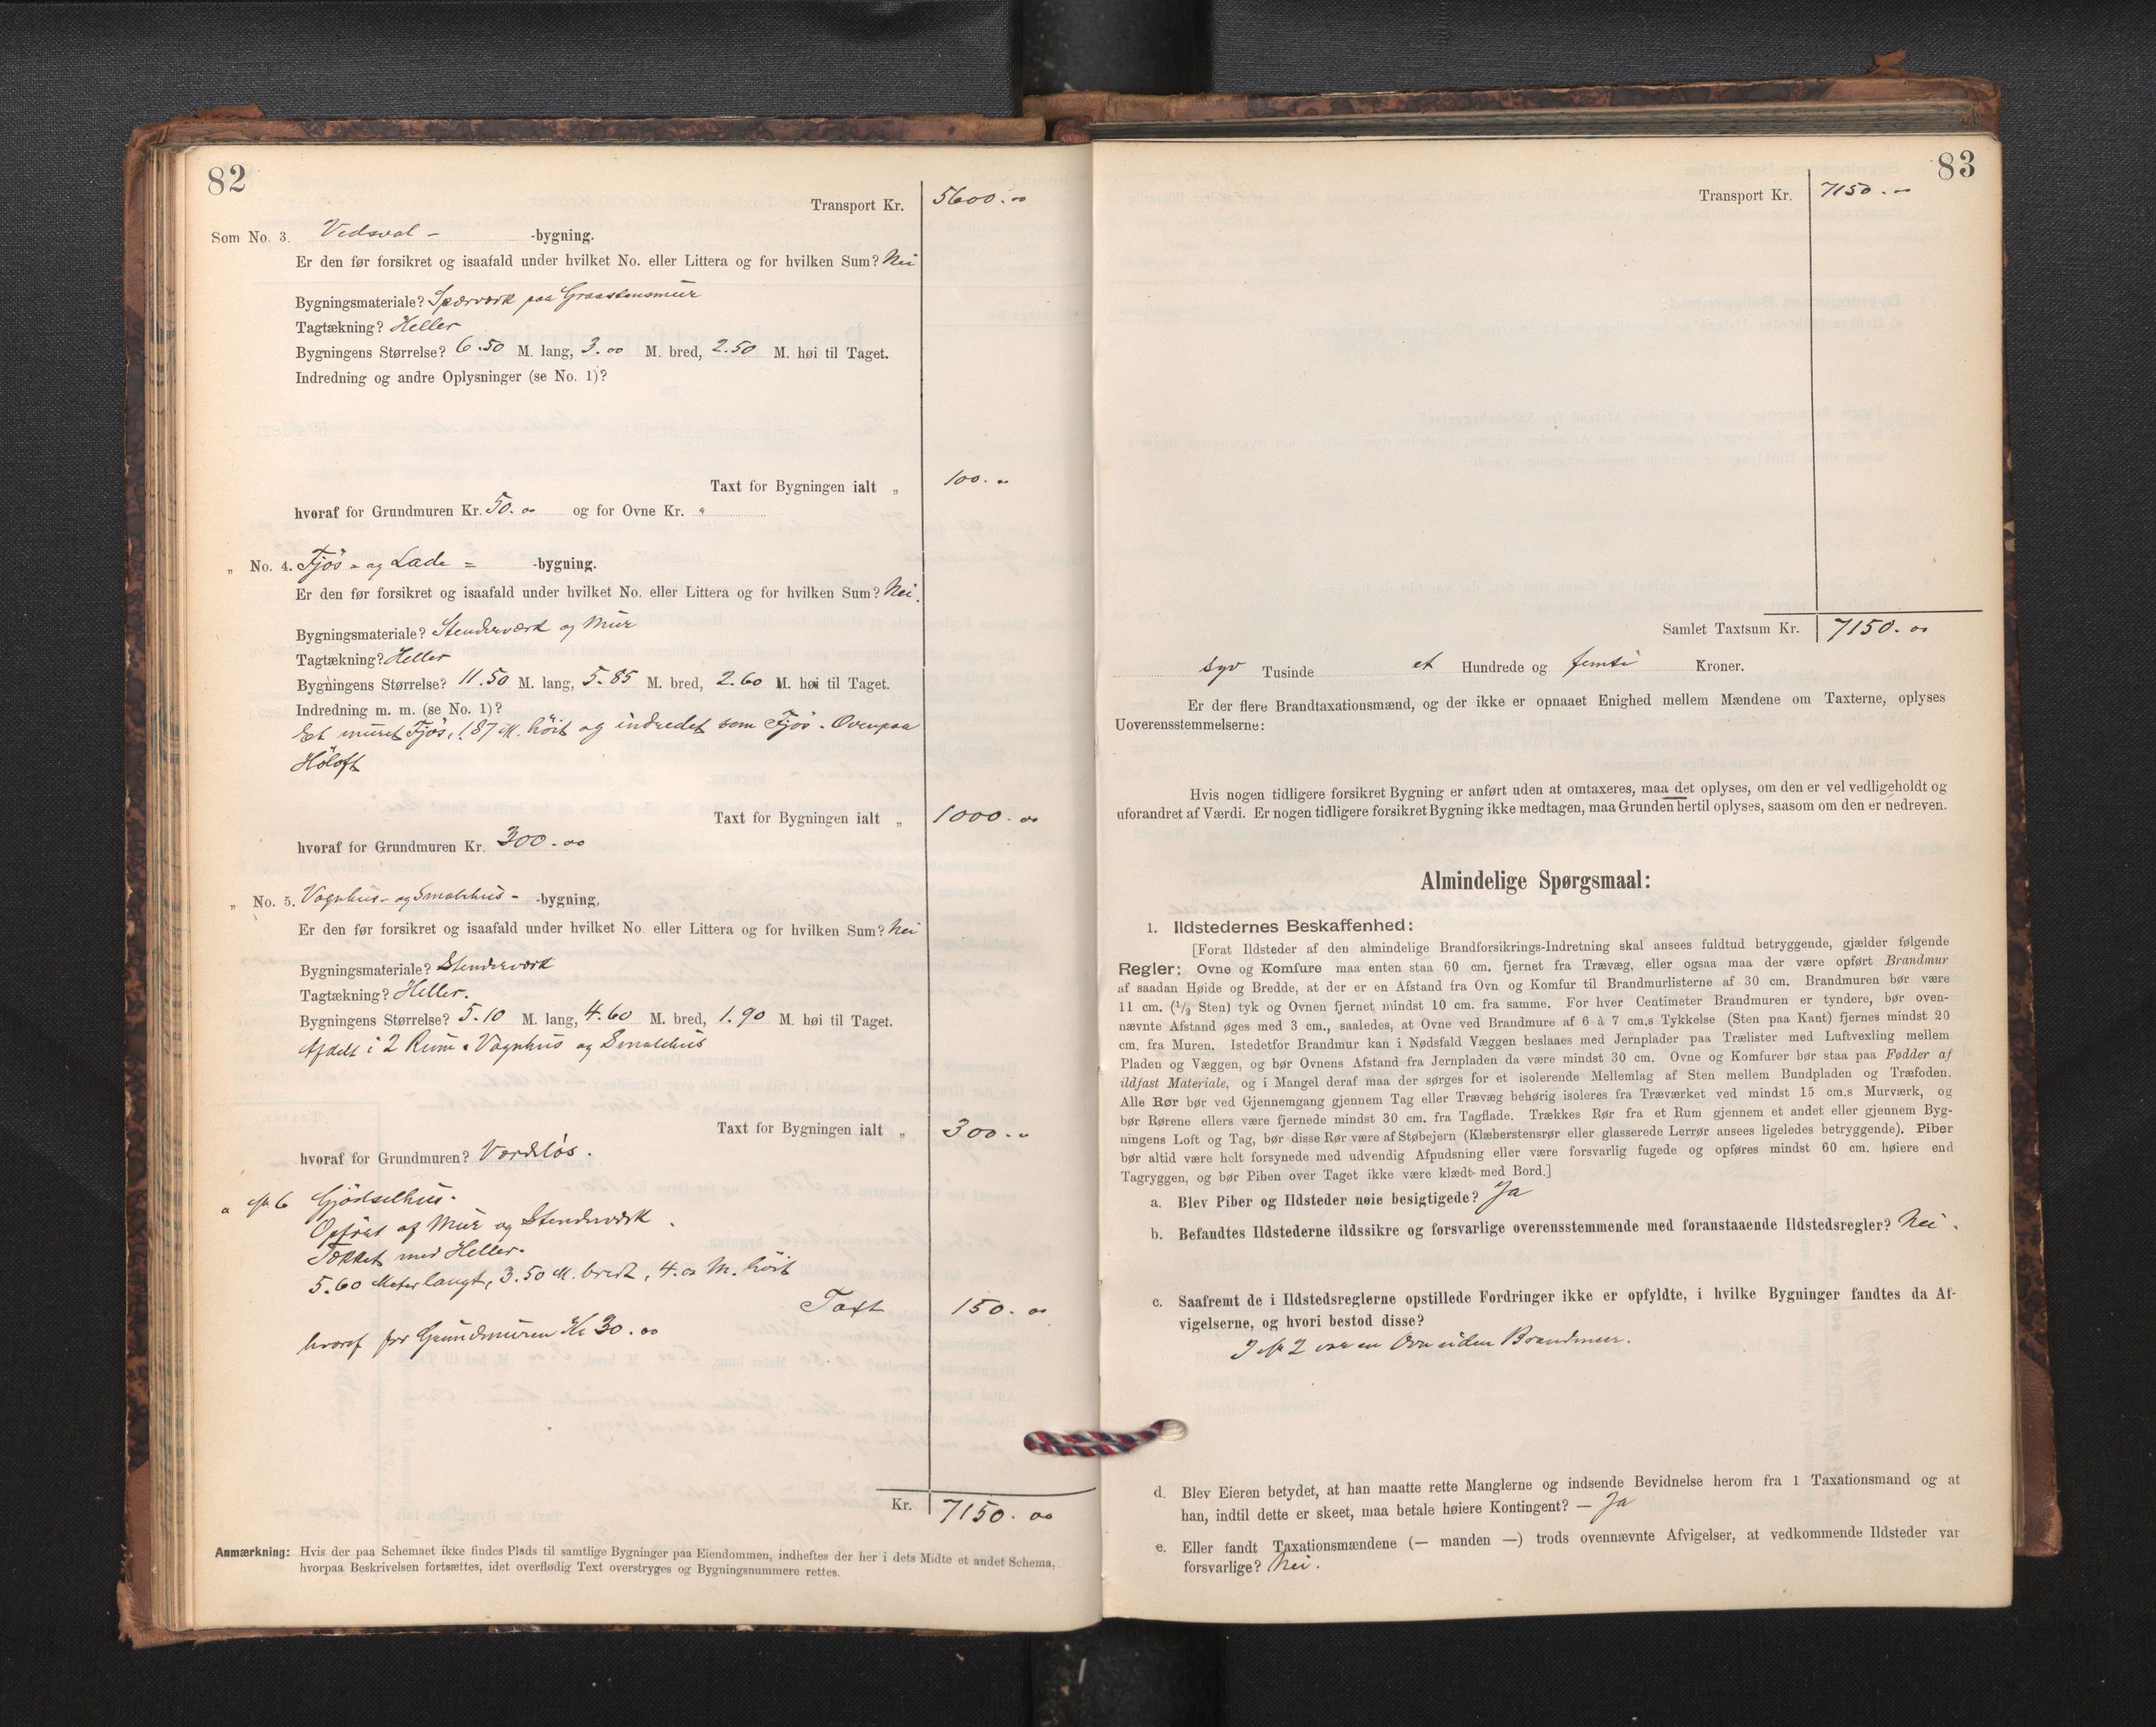 82
Transport Kr. 5600.00
Som No. 3. Vedsval- -bygning.
Er den før forsikret og isaafald under hvilket No. eller Littera og for hvilken Sum? Nei
Bygningsmateriale? Spærværk paa Graastensmur
Tagtækning? Heller
Bygningens Størrelse? 6.50 M. lang, 3.00 M. bred, 2.50 M. høi til Taget.
Indredning og andre Oplysninger (se No. 1)?
Taxt for Bygningen ialt „ 100.00
hvoraf for Grundmuren Kr. 50.00 og for Ovne Kr. "
„ No. 4. Fjøs- og Lade = -bygning.
Er den før forsikret og isaafald under hvilket No. eller Littera og for hvilken Sum? Nei.
Bygningsmateriale? Stenderværk og Mur
Tagtækning? Heller
Bygningens Størrelse? 11.50 M. lang, 5.85 M. bred, 2.60 M. høi til Taget.
Indredning m. m. (se No. 1)?
Et muret Fjøs, 1.87 M. høit og indredet som Fjøs. Ovenpaa
Høloft
Taxt for Bygningen ialt „ 1000.00
hvoraf for Grundmuren Kr. 300.00
„ No. 5. Vognhus- og Smalehus- -bygning,
Er den før forsikret og isaafald under hvilket No. eller Littera og for hvilken Sum? Nei
Bygningsmateriale? Stenderværk
Tagtækning? Heller.
Bygningens Størrelse? 5.10 M. lang, 4.60 M. bred, 1.90 M. høi til Taget.
Afdelt i 2 Rum. Vognhus og Smalehus
Taxt for Bygningen ialt „ 300.00
hvoraf for Grundmuren? Værdiløs.
" No 6 Gjødselhus.
Opført af Mur og Stenderværk.
Tækket med Heller.
5.60 Meter langt, 3.50 M. bredt, 4.00 M. høit
Taxt 150.00
hvoraf for Grundmuren Kr 30.00
Kr. 7150.00
Anmærkning: Hvis der paa Schemaet ikke findes Plads til samtlige Bygninger paa Eiendommen, indheftes der her i dets Midte et andet Schema,
hvorpaa Beskrivelsen fortsættes, idet overflødig Text overstryges og Bygningsnummere rettes.
83
Transport Kr. 7150.00
Samlet Taxtsum Kr. 7150.00
syv Tusinde et Hundrede og femti Kroner.
Er der flere Brandtaxationsmænd, og der ikke er opnaaet Enighed mellem Mændene om Taxterne, oplyses
Uoverensstemmelserne:
Hvis nogen tidligere forsikret Bygning er anført uden at omtaxeres, maa det oplyses, om den er vel vedligeholdt og
uforandret af Værdi. Er nogen tidligere forsikret Bygning ikke medtagen, maa Grunden hertil oplyses, saasom om den er nedreven.
Almindelige Spørgsmaal:
1. Ildstedernes Beskaffenhed:
[Forat Ildsteder af den almindelige Brandforsikrings-Indretning skal ansees fuldtud betryggende, gjælder følgende
Regler: Ovne og Komfure maa enten staa 60 cm. fjernet fra Trævæg, eller ogsaa maa der være opført Brandmur
af saadan Høide og Bredde, at der er en Afstand fra Ovn og Komfur til Brandmurlisterne af 30 cm. Brandmuren bør være
11 cm. (1/2 Sten) tyk og Ovnen fjernet mindst 10 cm. fra samme. For hver Centimeter Brandmuren er tyndere, bør oven-
nævnte Afstand øges med 3 cm., saaledes, at Ovne ved Brandmure af 6 à 7 cm.s Tykkelse (Sten paa Kant) fjernes mindst 20
cm. fra Muren. Istedetfor Brandmur kan i Nødsfald Væggen beslaaes med Jernplader paa Trælister med Luftvexling mellem
Pladen og Væggen, og bør Ovnens Afstand fra Jernpladen da være mindst 30 cm. Ovne og Komfurer bør staa paa Fødder af
ildfast Materiale, og i Mangel deraf maa der sørges for et isolerende Mellemlag af Sten mellem Bundpladen og Træfoden.
Alle Rør bør ved Gjennemgang gjennem Tag eller Trævæg behørig isoleres fra Træværket ved mindst 15 cm.s Murværk, og
bør Rørene ellers være fjernede mindst 30 cm. fra Tagflade. Trækkes Rør fra et Rum gjennem et andet eller gjennem Byg-
ningens Loft og Tag, bør disse Rør være af Støbejern (Klæberstensrør eller glasserede Lerrør ansees ligeledes betryggende). Piber
bør altid være helt forsynede med udvendig Afpudsning eller være forsvarlig fugede og opføres mindst 60 cm. høiere end
Tagryggen, og bør Piben over Taget ikke være klædt med Bord.]
a. Blev Piber og Ildsteder nøie besigtigede? Ja
b. Befandtes Ildstederne ildssikre og forsvarlige overensstemmende med foranstaaende Ildstedsregler? Nei.
c. Saafremt de i Ildstedsreglerne opstillede Fordringer ikke er opfyldte, i hvilke Bygninger fandtes da Af-
vigelserne, og hvori bestod disse?
I No 2 var en Ovn uden Brandmur.
d. Blev Eieren betydet, at han maatte rette Manglerne og indsende Bevidnelse herom fra 1 Taxationsmand og at
han, indtil dette er skeet, maa betale høiere Kontingent? — Ja
e. Eller fandt Taxationsmændene (— manden —) trods ovennævnte Afvigelser, at vedkommende Ildsteder var
forsvarlige? Nei.